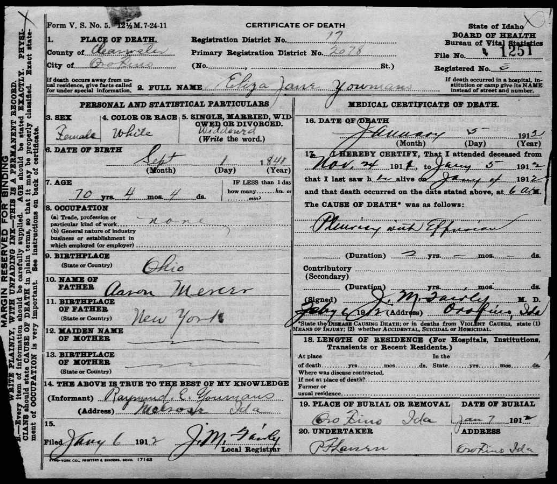 Form V. S. No. 5. 12½ M. 7-24-11
CERTIFICATE OF DEATH
State of Idaho
BOARD OF HEALTH
Bureau of Vital Statistics
1. PLACE OF DEATH.
Registration District No. 17
County of
Primary Registration District No. 2078
File No. 1251
City of Orofino
(No. St.)
Registered No. 6
If death occurs away from usual residence, give facts called for under special information.
2. FULL NAME Eliza Jane Youmans
If death occurred in a hospital, institution or camp give its NAME instead of street and number.
PERSONAL AND STATISTICAL PARTICULARS
3. SEX
Female
4. COLOR OR RACE
White
5. SINGLE, MARRIED, WIDOWED OR DIVORCED.
Widowed
(Write the word.)
6. DATE OF BIRTH
Sept 1 1841
(Month) (Day) (Year)
7. AGE
IF LESS than 1 day
how many hrs. or min.
70 yrs. 4 mos. 4 ds.
8. OCCUPATION
(a) Trade, profession or particular kind of work none
(b) General nature of industry business or establishment in which employed (or employer)
9. BIRTHPLACE
(State or Country)
Ohio
10. NAME OF FATHER
Aaron Mercer
11. BIRTHPLACE OF FATHER
(State or Country)
New York
12. MAIDEN NAME OF MOTHER
13. BIRTHPLACE OF MOTHER
(State or Country)
14. THE ABOVE IS TRUE TO THE BEST OF MY KNOWLEDGE
(Informant) Raymond E. Youmans
(Address) Ida
15.
Filed Jany 6 1912 J. M. Fairly
Local Registrar
MEDICAL CERTIFICATE OF DEATH
16. DATE OF DEATH
January 5 1912
(Month) (Day) (Year)
17. I HEREBY CERTIFY, That I attended deceased from
Nov. 24 191 , to Jany 5 1912
that I last saw h er alive on Jany 4 1912
and that death occurred on the date stated above, at 6 am
The CAUSE OF DEATH* was as follows:
Pleurisy with Effusion
(Duration) yrs. mos. ds.
Contributory
(Secondary)
(Duration) yrs. mos. ds.
(Signed) J. M. Fairly M. D.
1912 (Address) Orofino, Ida
*State the DISEASE CAUSING DEATH; or in deaths from VIOLENT CAUSES, (1) MEANS OF INJURY; (2) whether ACCIDENTAL, SUICIDAL or HOMICIDAL.
18. LENGTH OF RESIDENCE (For Hospitals, Institutions, Transients or Recent Residents.)
At place of death yrs. mos. days. In the State yrs. mos. ds.
Where was disease contracted,
if not at place of death?
Former or usual Residence
19. PLACE OF BURIAL OR REMOVAL
Orofino Ida
DATE OF BURIAL
Jan 7 1912
20. UNDERTAKER
ADDRESS
Orofino Ida
MARGIN RESERVED FOR BINDING
WRITE PLAINLY, WITH UNFADING INK—THIS IS A PERMANENT RECORD.